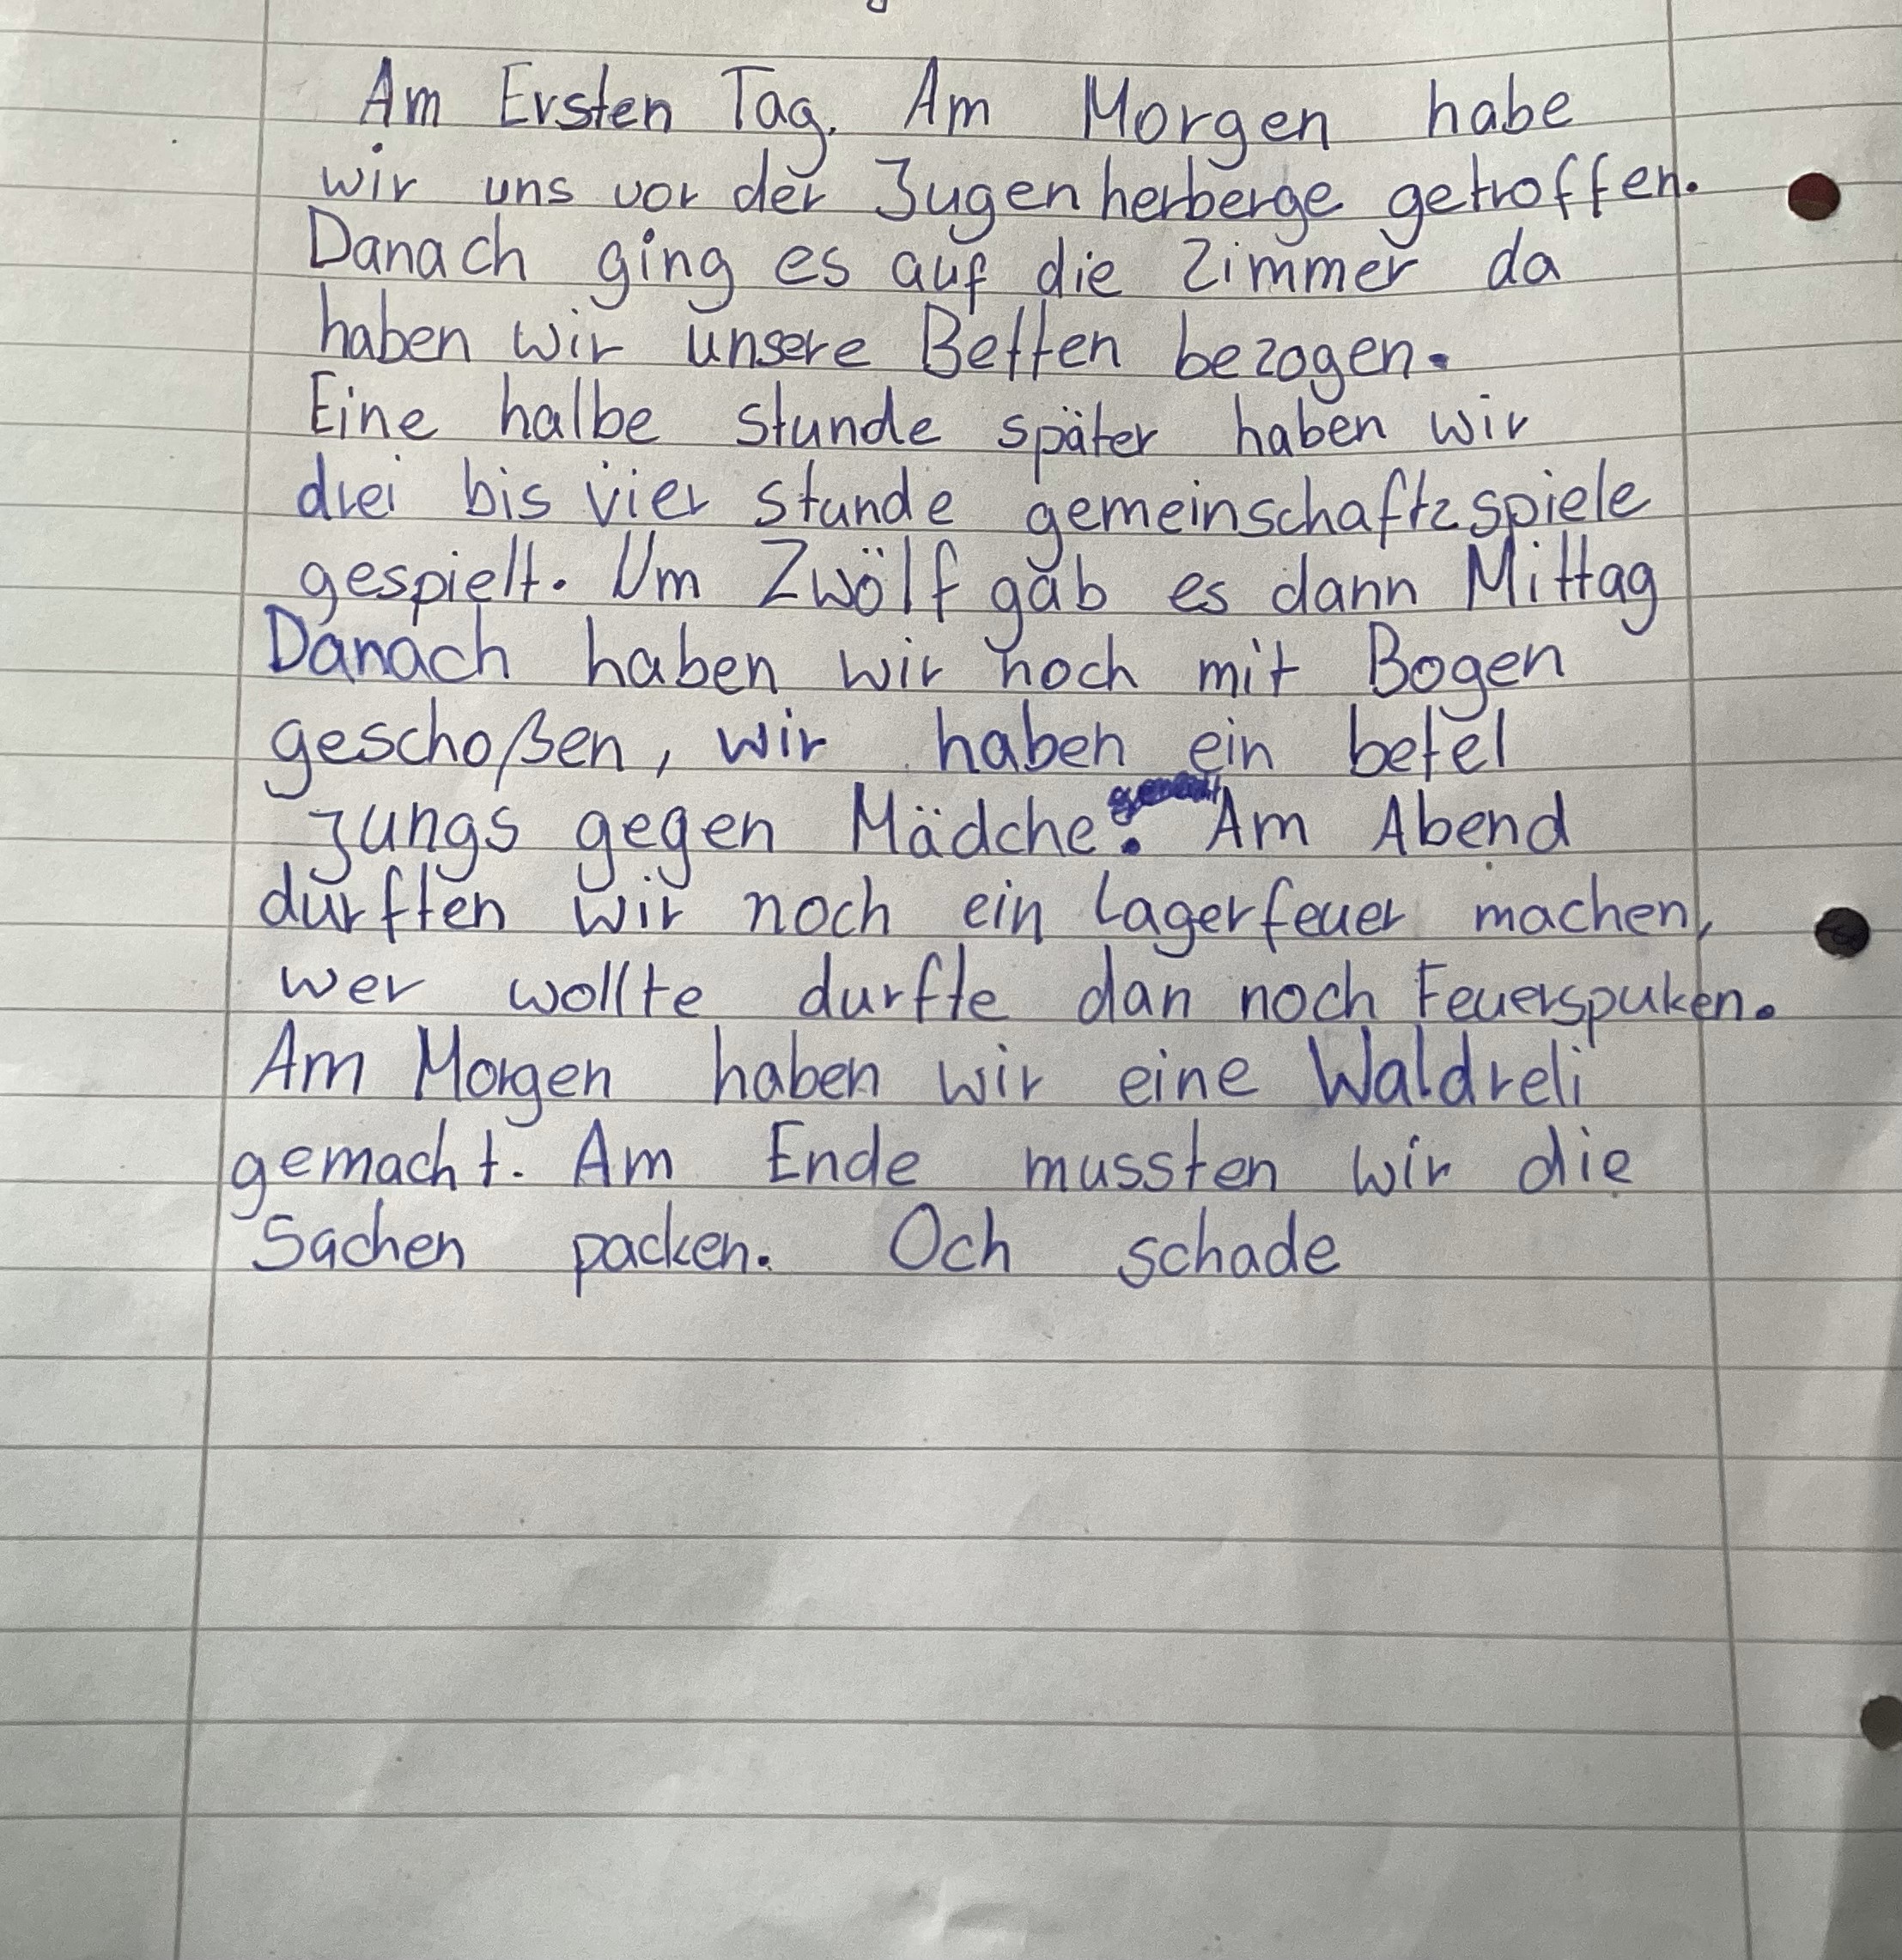 Am Ersten Tag. Am Morgen habe
wir uns vor der Jugenherberge getroffen.
Danach ging es auf die Zimmer da
haben wir unsere Betten bezogen.
Eine halbe stunde später haben wir
drei bis vier stunde gemeinschaftzspiele
gespielt. Um Zwölf gab es dann Mittag
Danach haben wir noch mit Bogen
geschoßen, wir haben ein betel
jungs gegen Mädche. Am Abend
durften wir noch ein Lagerfeuer machen,
wer wollte durfte dan noch Feuerspuken.
Am Morgen haben wir eine Waldreli
gemacht. Am Ende mussten wir die
Sachen packen. Och schade